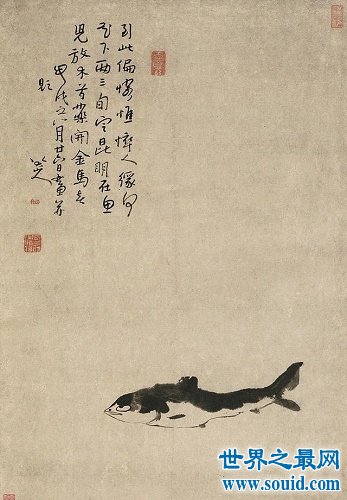 到此偏憐憔悴人緣何
花下兩三旬定昆明在魚
兒放木芍藥開金馬春
甲戌之六月廿日畫并
題
八大山人
世界之最网
www.souid.com